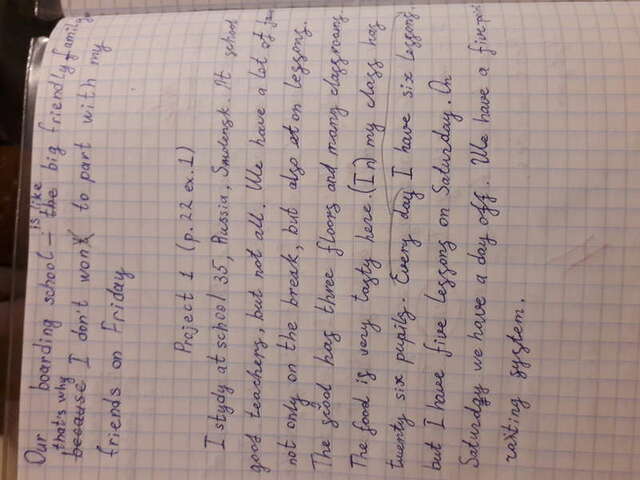 Our boarding school – is like the big friendly family,
that's why because I don't wont to part with my
friends on Friday
Project 1 (p.22 ex.1)
I study at school 35, Russia, Smolensk. At school
good teachers, but not all. We have a lot of fun
not only on the break, but also at on lessons.
The scool has three floors and many classrooms.
The food is very tasty here. (In) my class has
twenty six pupils. Every day I have six lessons.
but I have five lessons on Saturday. On
Saturday we have a day off. We have a five
raiting system.